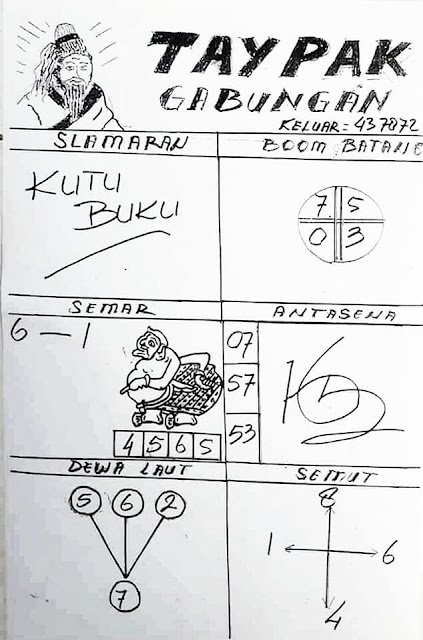 TAYPAK
GABUNGAN
KELUAR = 437872
SLAMARAN
BOOM BATANG
KUTU
BUKU
7 5
0 3
SEMAR
ANTASENA
6 – 1
07
57
53
4 5 6 5
DEWA LAUT
SEMUT
5 6 2
7
8
1 6
4